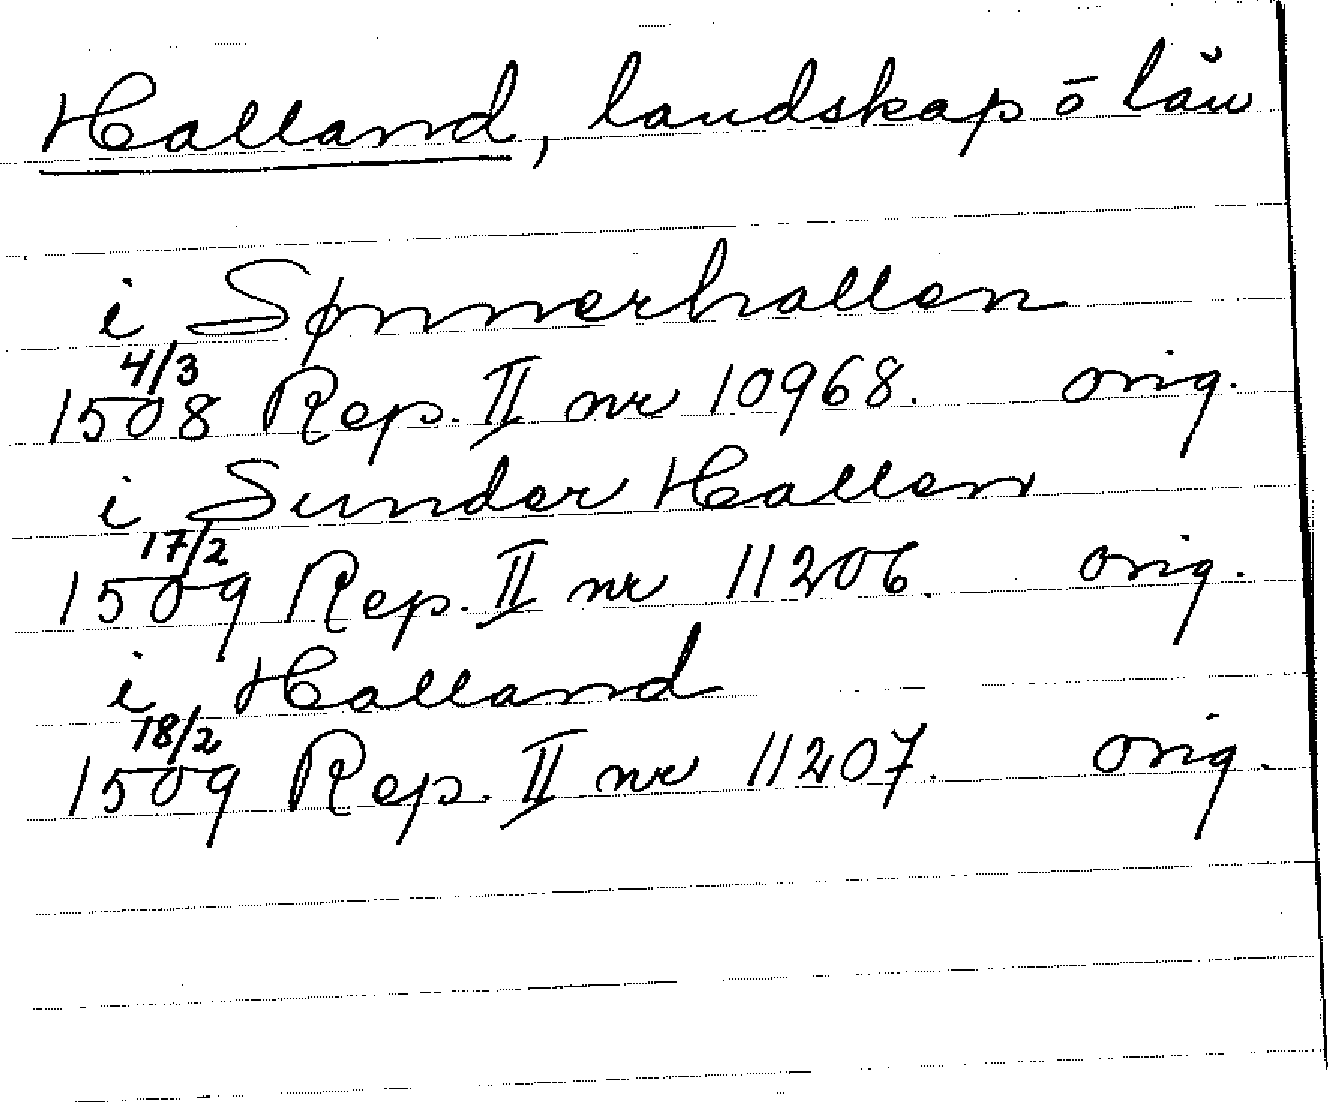 Halland, landskap ō län
i Sønnerhallen
4/3
1508 Rep. II nr 10968. orig.
i Sunder Hallen
17/2
1509 Rep. II nr 11206. orig.
i Halland
18/2
1509 Rep. II nr 11207. orig.